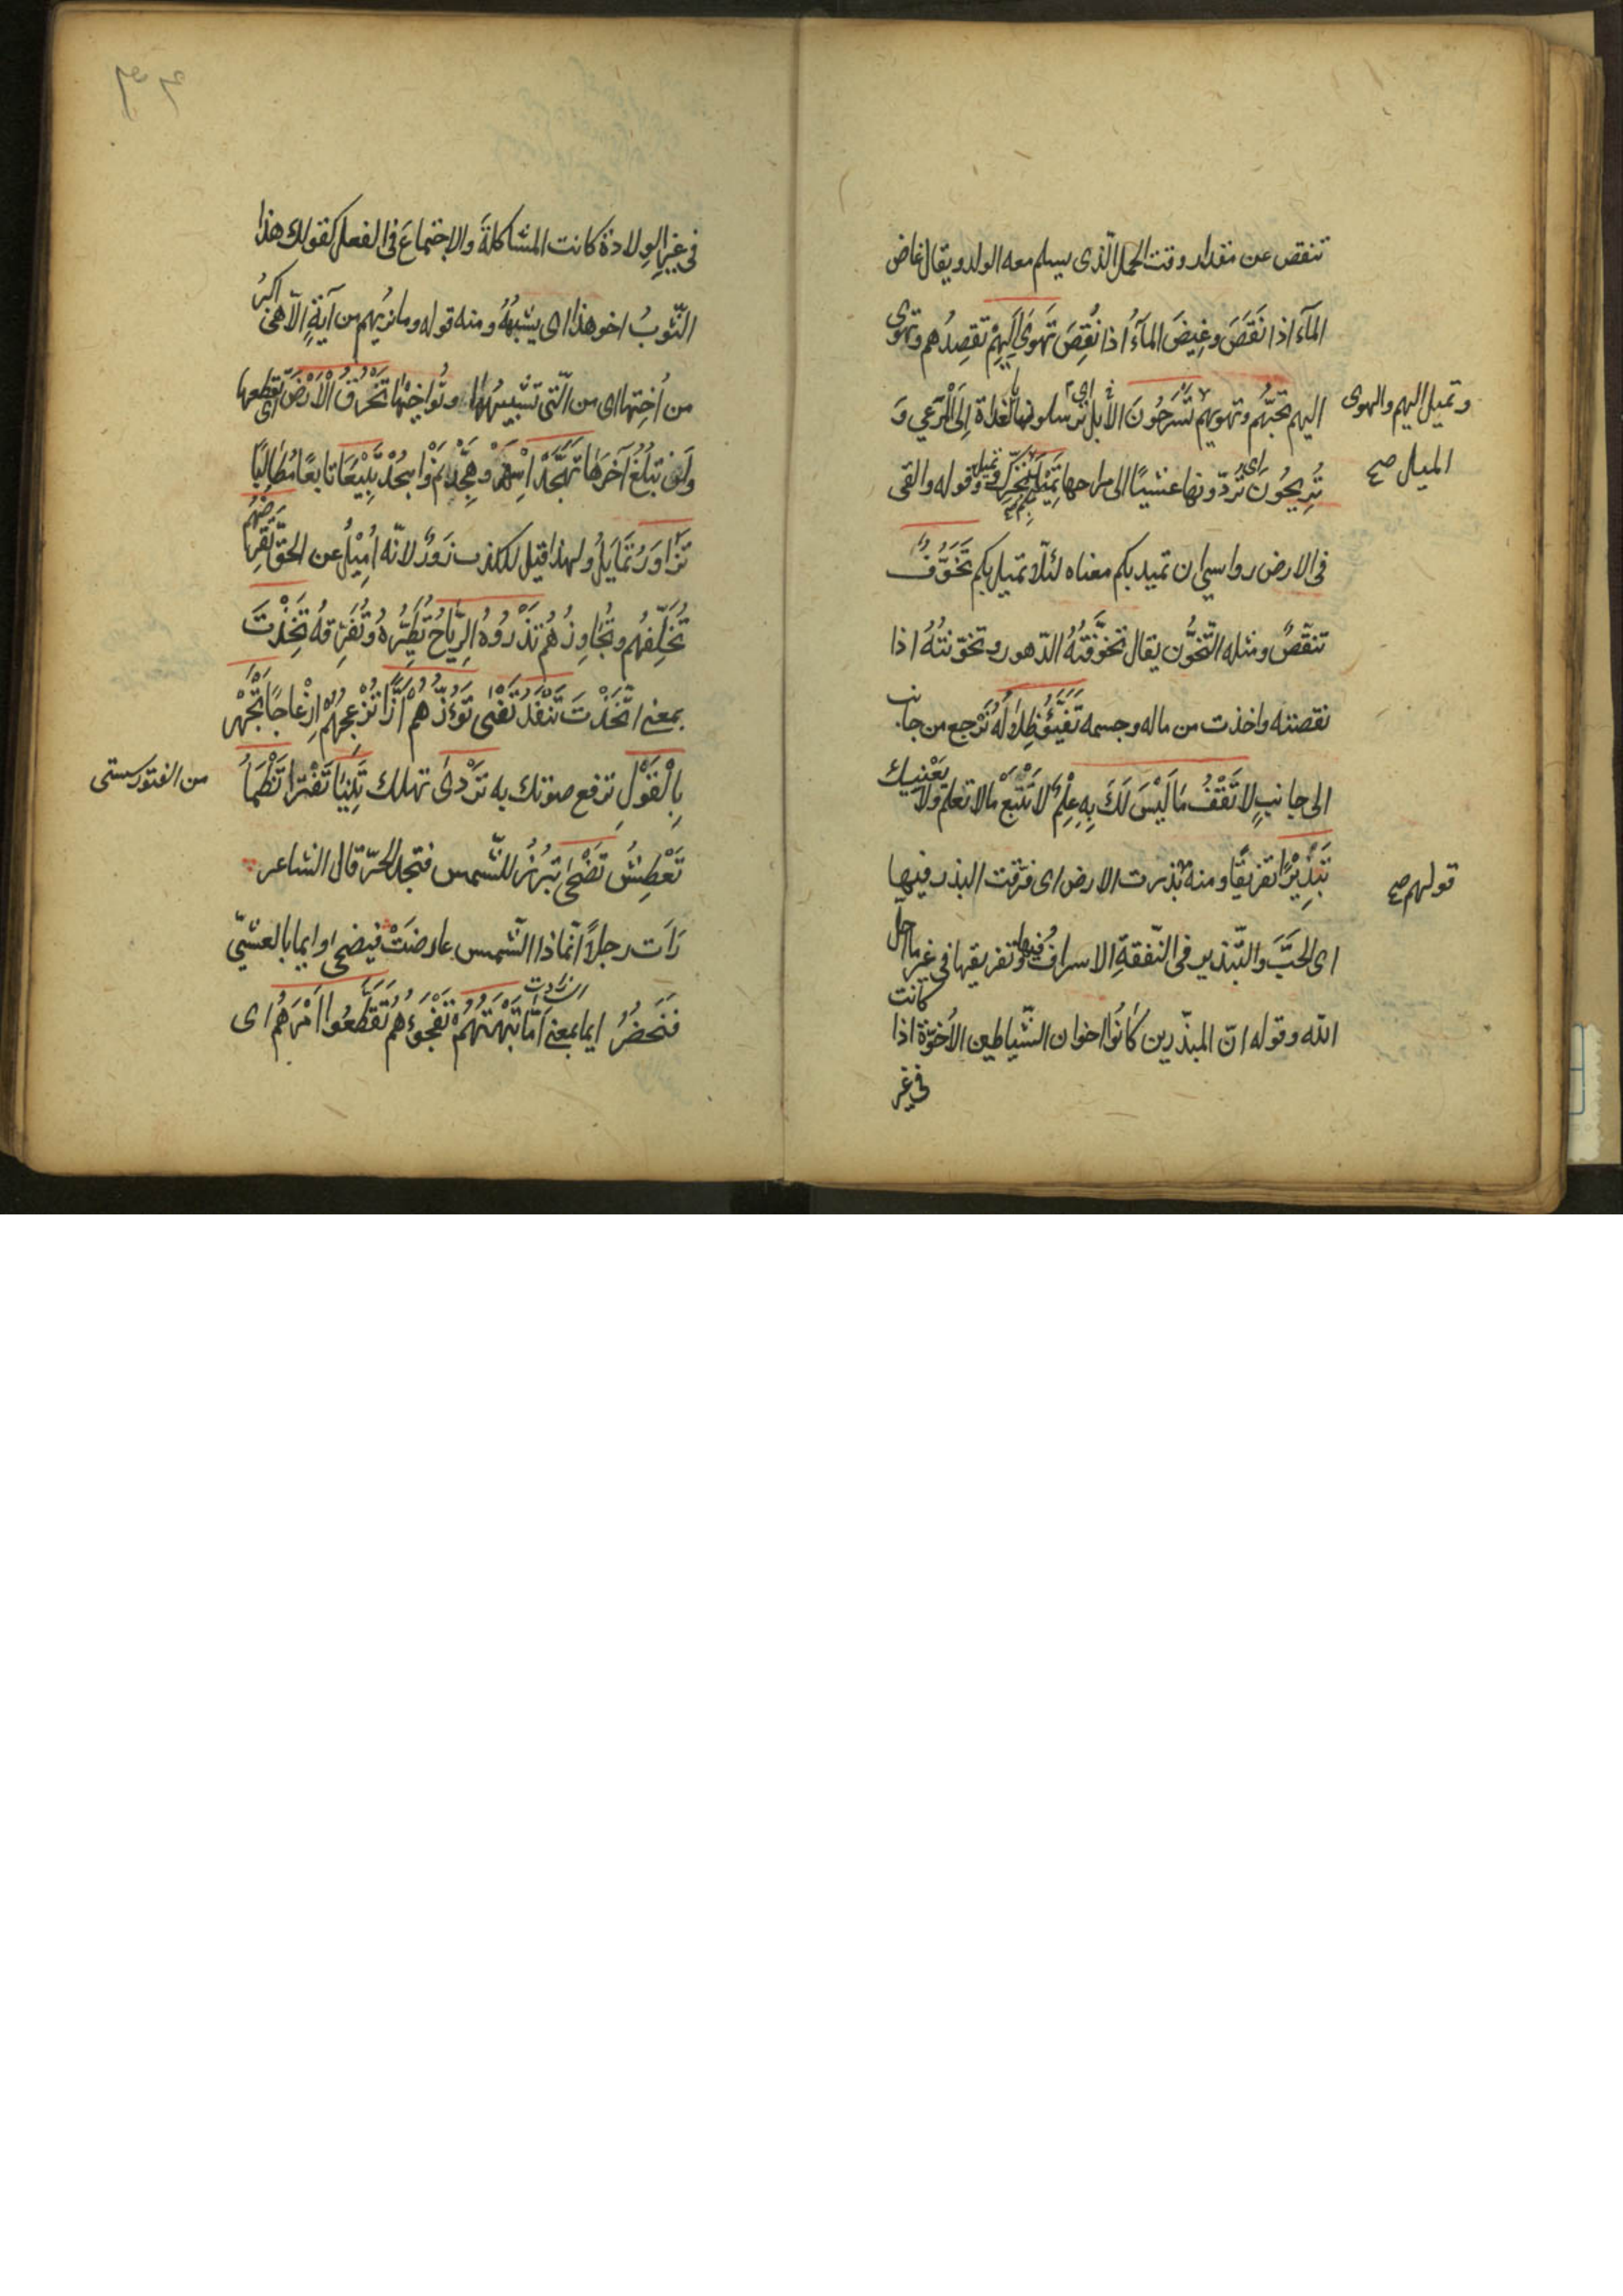 تنقص عن مقدار وقت الحمل الّذى يسلم معه الولد ويقال غاض
المآءَ اذا نَقَصَ وغِيضَ المآءُ اذا نُقِصَ تَهوى اِلَيهِمْ تقصِدُهم وتهوى
اليهم تحبّهم وتهويهم تَسْرَحُونَ الأبل اى ترسلونها بالغداة اِلَى الْمَرْعي وَ
وتميل اليهم والهوى
الميل صح
تُرِيحُونَ اى تردّونها عشيًا الى مراحها تَمِيْدَ تتحرّك وتميل وقوله والقى
فى الارض رواسي ان تميد بكم معناه لئلّا تميل بكم تَخَوُّفٍ
تنقّصٌ ومثله التّخوُّن يقال تخوَّفَتْهُ الدّهور وتخوّنتْهُ اذا
نقصته واخذت من ماله وجسمه تَفَيَّؤُ ظِلَالُهُ تَرْجع من جانب
الى جانبٍ لَا تَقْفُ مَا لَيْسَ لَكَ بِهِ عِلْمٌ لا تَتْبَعْ مالا تعلم ولا يَعْنِيك
تَبْذِيْرًا تفريقًا ومنه بَذرت الارض اى فرّقت البذر فيها
قولهم صح
اى الحَبَّ والتّبذير فى النّفقةِ الاسرافُ فيها وتفريقها فى غير ما احلّ
الله وقوله انّ المبذّرين كَانُوا اخوان الشّياطين الاُخوّة اذا كانت
فى غير
في غير الوِلادة كانت المشاكلةَ والاجتماعَ فى الفعل كقولك هذا
الثّوبُ اخو هذا اى يشبههُ ومنه قوله وما نريهم من آيةٍ الّا هى اكبرُ
من اُخِتها اى من الّتى تشبهها وتُواخِيْها تَخْرُقَ الْاَرْضَ اى تقطعها
ولن تبلُغَ آخرَها تَهَجَّدْ اسْهَرْ وهَجَّدَ نَمْ وَاسجُدْ تَبِيْعًا تابعًا مُطَالِبًا
تَزَاوَرُ تَمَايَلُ ولهذا قيل للكذب زَورٌ لانّه اُمِيْلُ عن الحقّ تَقْرِضُهُم
تُخَلِّفهُم وتُجَاوِزُهُم تَذْرُوهُ الرِّيَاحُ تُطَيِّرُهُ وتُفَرِّقهُ تَخِذْتَ
بمعنى اتَّخَذْتَ تَنْفَدُ تَفْنى تَؤُزُّهُمْ اَزًّا تُزْعِجُهُمْ اِزْعاجًا تَجْهَرْ
بِالْقَوْلِ ترفع صوتك به تَرْدى تهلك تَنِيَا تَفْتُرا تَظْمَأُ
من الفتور سستى
تَعْطِشُ تَضْحَى تبرُزُ للشّمس فتجد الحَرّ قال الشاعر
رَاَت رجلًا اَيْمَا اذا الشّمس عارضَتْ فيضحى وايما بالعشيّ
فَيَخْصَرُ ايما بمعنى اَمَّا تَبْهَتُهُمْ تَفْجَؤُهم تَقَطَّعُوا اَمْرَهُم اى